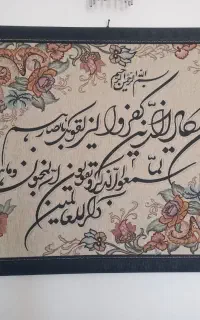 بسم الله الرحمن الرحیم
یکاد الذین کفروا لیزلقونک بابصارهم
لما سمعوا الذکر و یقولون انه لمجنون و ما
ذکر للعالمین